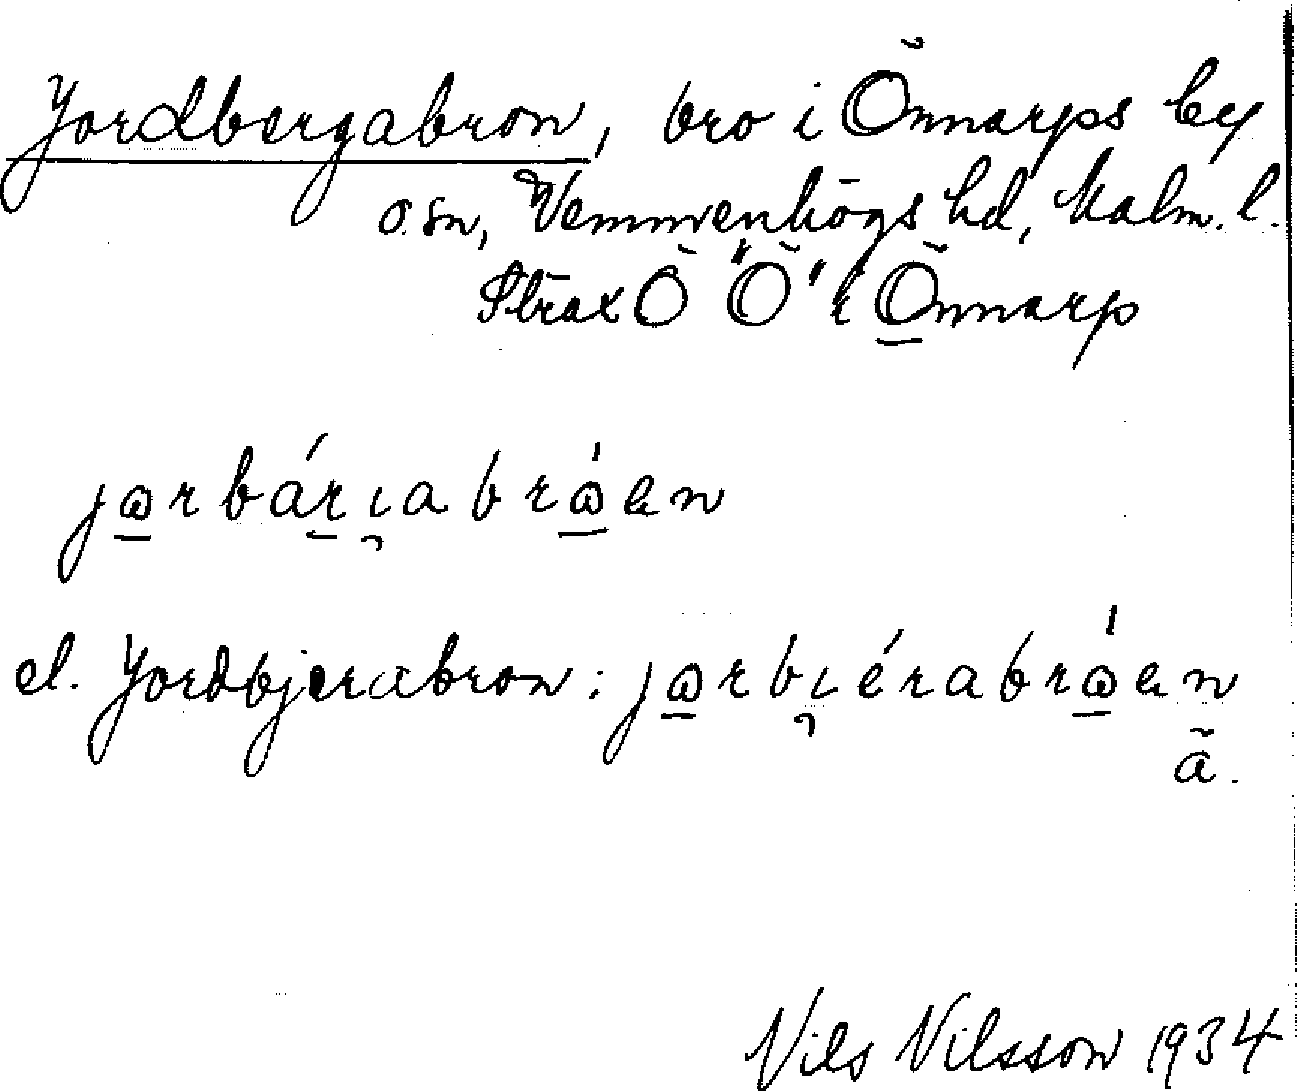 Jordbergabron, bro i Önnarps by
o. sn, Vemmenhögs hd, Malm. l.
Strax Ö "Ö" i Önnarp
jɷrbárıabrɷ́en
el. Jordbjerabron: jɷrbıérabrɷ́en
ã.
Nils Nilsson 1934